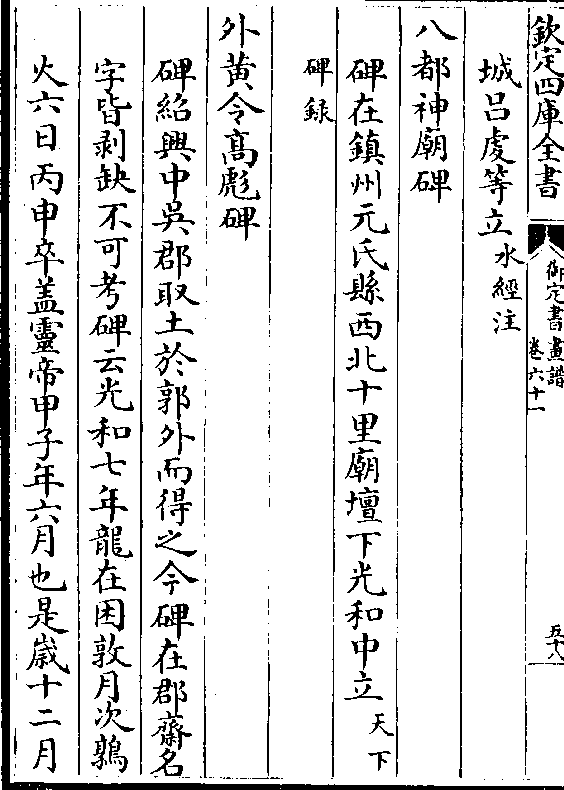 欽定四庫全書
御定書畫譜
卷六十一
五十八
城呂虔等立水經注
八都神廟碑
碑在鎮州元氏縣西北十里廟壇下光和中立天下
碑錄
外黃令髙彪碑
碑紹興中吳郡取土於郭外而得之今碑在郡齋名
字皆剥缺不可考碑云光和七年龍在困敦月次鶉
火六日丙申卒盖靈帝甲子年六月也是歲十二月